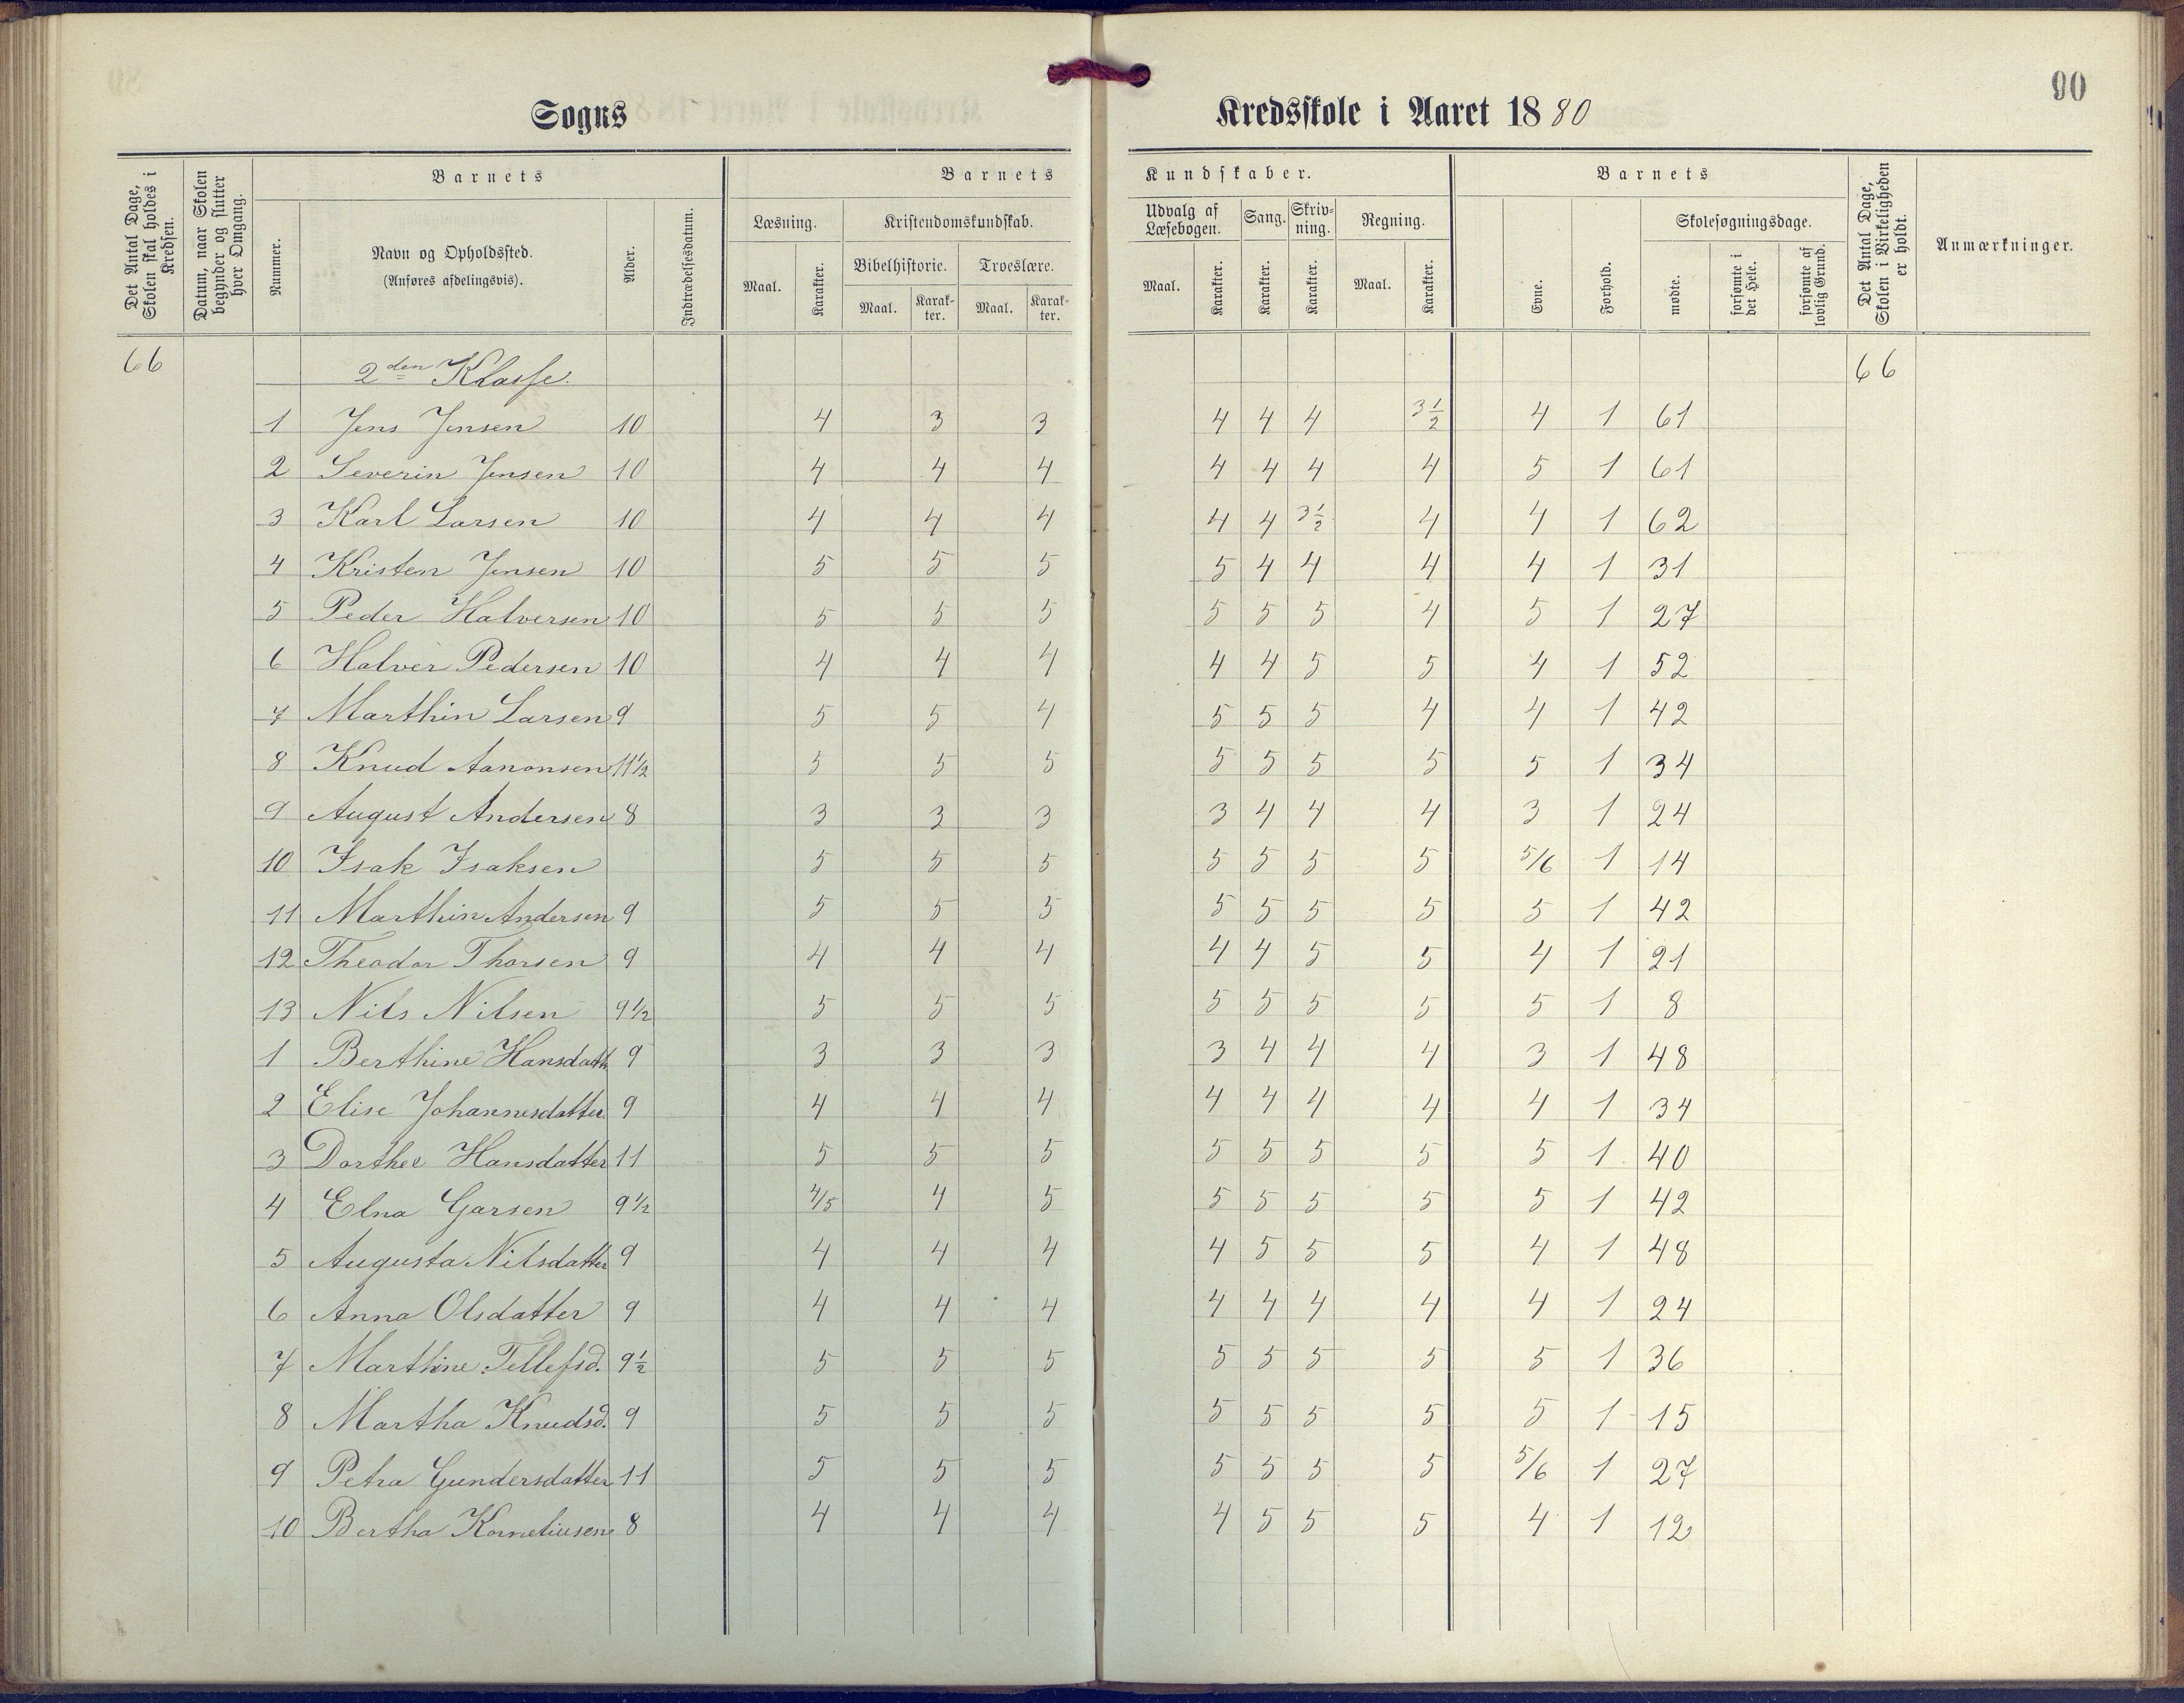 90
Sogns Kredsskole i Aaret 1880
Det Antal Dage, Skolen skal holdes i Kredsen.
Datum, naar Skolen begynder og slutter hver Omgang.
Barnets
Nummer.
Navn og Opholdssted.
(Anføres afdelingsvis).
Alder.
Indtrædelsesdatum.
Barnets Kundskaber.
Læsning.
Maal. Karakter.
Kristendomskundskab.
Bibelhistorie. Troeslære.
Maal. Karakter. Maal. Karakter.
Udvalg af Læsebogen.
Maal. Karakter.
Sang.
Karakter.
Skrivning.
Karakter.
Regning.
Maal. Karakter.
Barnets
Evne. Forhold.
Skolesøgningsdage.
mødte. forsømte i det Hele. forsømte af lovlig Grund.
Det Antal Dage, Skolen i Virkeligheden er holdt.
Anmærkninger.
66 2den Klasse. 66
1 Jens Jensen 10 4 3 3 4 4 4 3½ 4 1 61
2 Severin Jensen 10 4 4 4 4 4 4 4 5 1 61
3 Karl Larsen 10 4 4 4 4 4 3½ 4 4 1 62
4 Kristen Jensen 10 5 5 5 5 4 4 4 4 1 31
5 Peder Halversen 10 5 5 5 5 5 5 4 5 1 27
6 Halver Pedersen 10 4 4 4 4 4 5 5 4 1 52
7 Marthin Larsen 9 5 5 4 5 5 5 4 4 1 42
8 Knud Aanonsen 11½ 5 5 5 5 5 5 5 5 1 34
9 August Andersen 8 3 3 3 3 4 4 4 3 1 24
10 Isak Isaksen 5 5 5 5 5 5 5 5/6 1 14
11 Marthin Andersen 9 5 5 5 5 5 5 5 5 1 42
12 Theodor Thorsen 9 4 4 4 4 4 5 5 4 1 21
13 Nils Nilsen 9½ 5 5 5 5 5 5 5 5 1 8
1 Berthine Hansdatt 9 3 3 3 3 4 4 4 3 1 48
2 Elise Johannesdatter 9 4 4 4 4 4 4 4 4 1 34
3 Dorthee Hansdatter 11 5 5 5 5 5 5 5 5 1 40
4 Elna Garsen 9½ 4/5 4 5 5 5 5 5 5 1 42
5 Augusta Nilsdatter 9 4 4 4 4 5 5 5 4 1 48
6 Anna Olsdatter 9 4 4 4 4 4 4 4 4 1 24
7 Marthine Tellefsd. 9½ 5 5 5 5 5 5 5 5 1 36
8 Martha Knudsd. 9 5 5 5 5 5 5 5 5 1 15
9 Petra Gundersdatter 11 5 5 5 5 5 5 5 5/6 1 27
10 Bertha Korneliusen 8 4 4 4 4 5 5 5 4 1 12